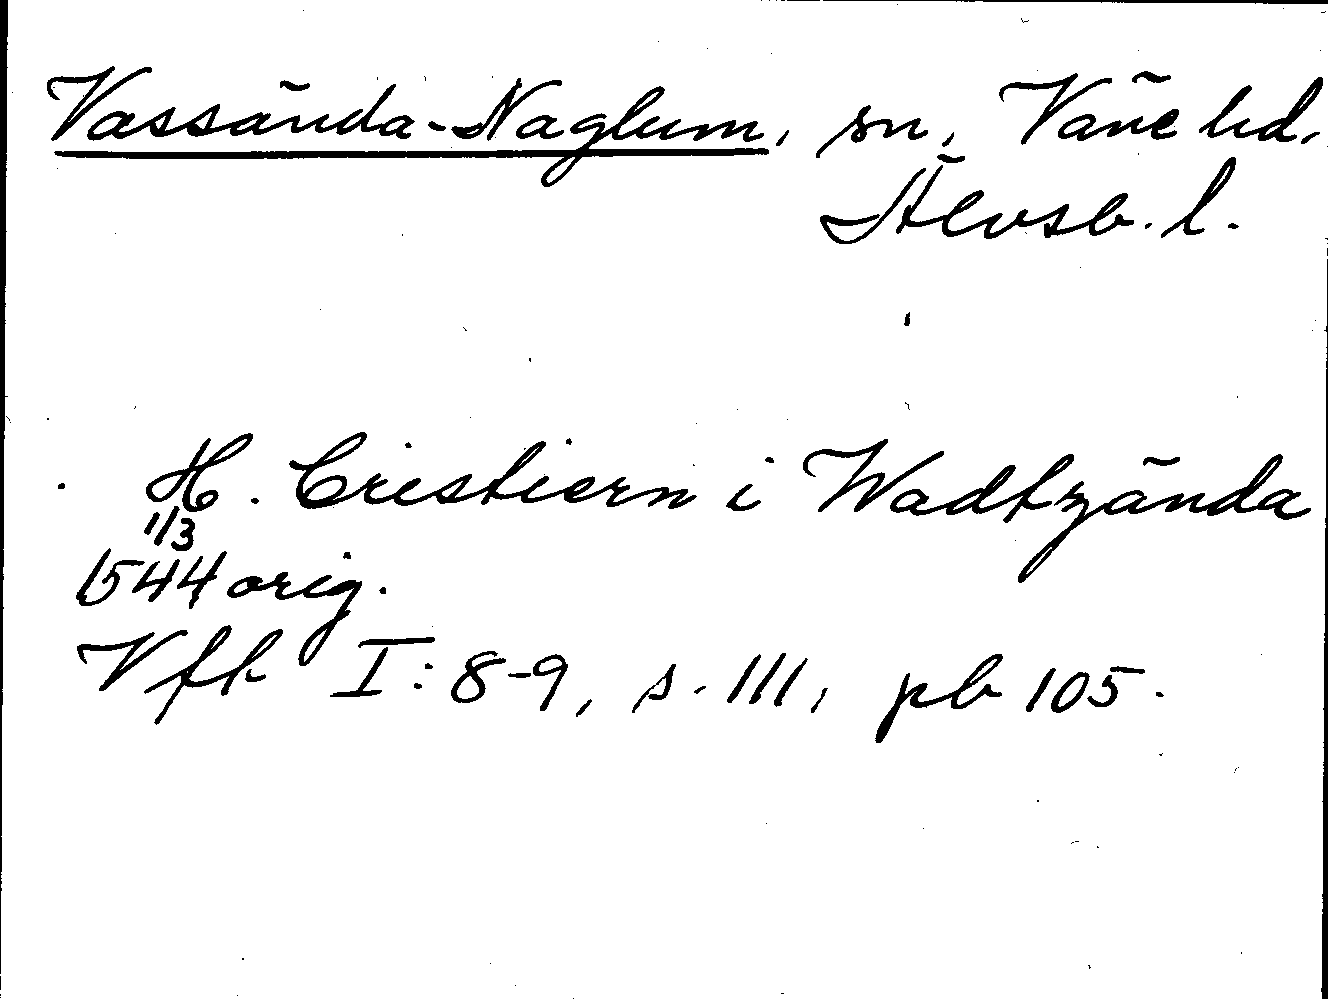 Vassända-Naglum, sn, Väne hd,
Älvsb. l.
H. Cristiern i Wadtzända
1/3
1544 orig.
Vfk I: 8-9, s. 111, pb 105.